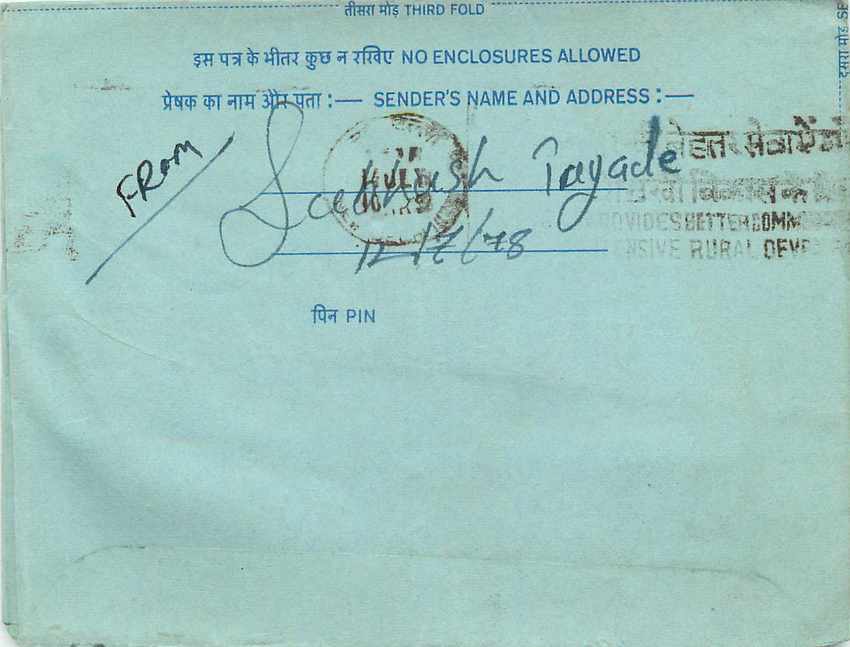 तीसरा मोड़ THIRD FOLD
इस पत्र के भीतर कुछ न रखिए NO ENCLOSURES ALLOWED
प्रेषक का नाम और पता :— SENDER'S NAME AND ADDRESS :—
FROM
Tayade
12/7/78
बेहतर सेवायें
OVIDES BETTER COMM
ENSIVE RURAL DEVE
पिन PIN